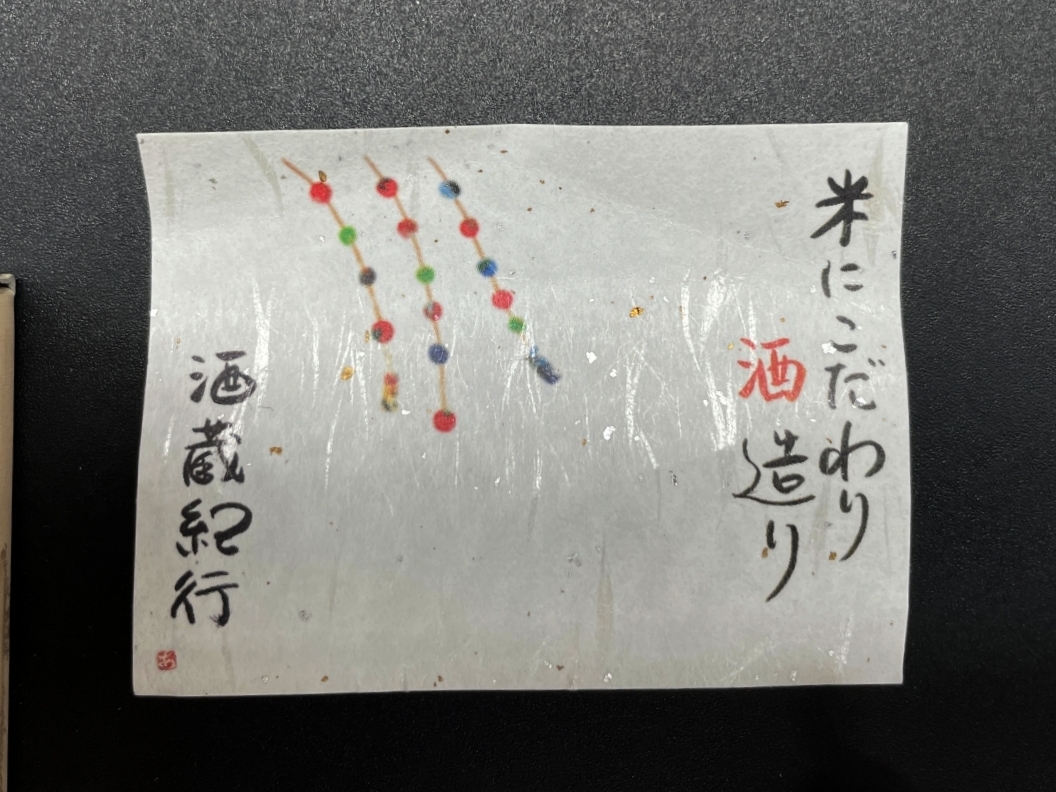 米にこだわり
酒造り
酒蔵紀行
あ